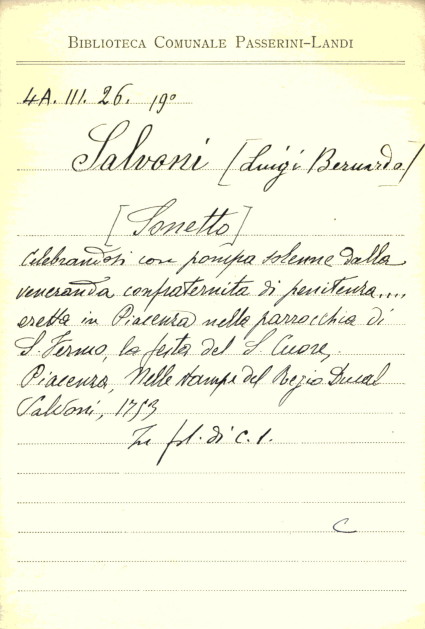 BIBLIOTECA COMUNALE PASSERINI-LANDI
4A. III. 26. 19°
Salvoni [Luigi Bernardo]
[Sonetto]
Celebrandosi con pompa solenne dalla
veneranda confraternita di penitenza....
eretta in Piacenza nella parrocchia di
S. Fermo, la festa del S. Cuore,
Piacenza, Nelle stampe del Regio Ducal
Salvoni, 1753
In fol. di c. 1.
C